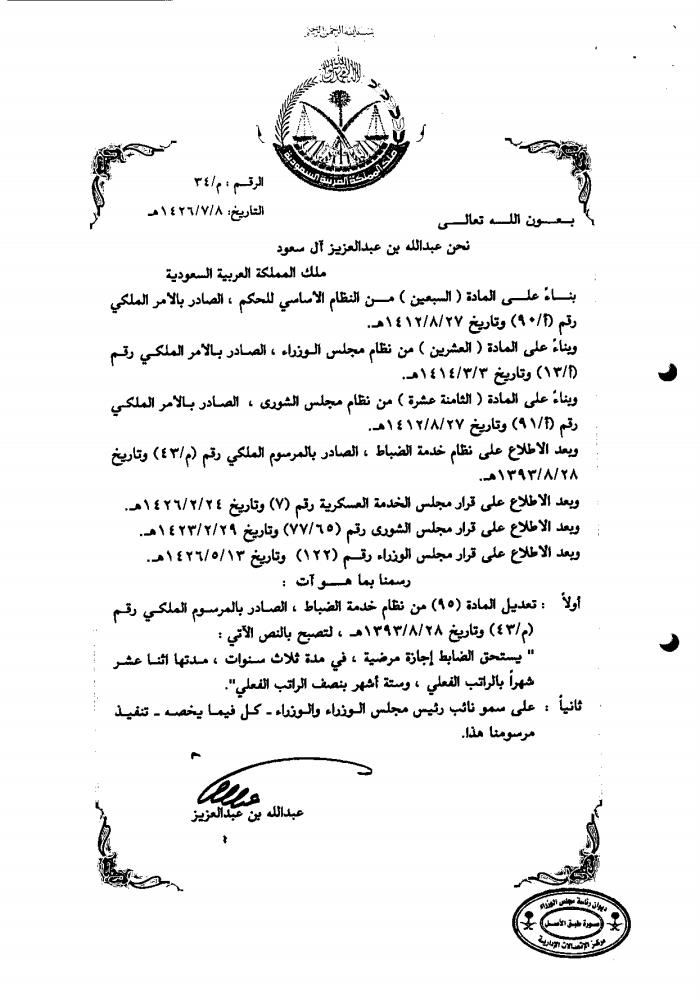 بسم الله الرحمن الرحيم
المملكة العربية السعودية
الرقم : م/٣٤
التاريخ: ١٤٢٦/٧/٨هـ
بعون الله تعالى
نحن عبدالله بن عبدالعزيز آل سعود
ملك المملكة العربية السعودية
بناءً على المادة ( السبعين ) من النظام الأساسي للحكم ، الصادر بالأمر الملكي
رقم (أ/٩٠) وتاريخ ١٤١٢/٨/٢٧هـ.
وبناءً على المادة ( العشرين ) من نظام مجلس الوزراء ، الصادر بالأمر الملكي رقم
(أ/١٣) وتاريخ ١٤١٤/٣/٣هـ.
وبناءً على المادة ( الثامنة عشرة ) من نظام مجلس الشورى ، الصادر بالأمر الملكي
رقم (أ/٩١) وتاريخ ١٤١٢/٨/٢٧هـ.
وبعد الاطلاع على نظام خدمة الضباط ، الصادر بالمرسوم الملكي رقم (م/٤٣) وتاريخ
١٣٩٣/٨/٢٨هـ.
وبعد الاطلاع على قرار مجلس الخدمة العسكرية رقم (٧) وتاريخ ١٤٢٦/٢/٢٤هـ.
وبعد الاطلاع على قرار مجلس الشورى رقم (٧٧/٦٥) وتاريخ ١٤٢٣/٢/٢٩هـ.
وبعد الاطلاع على قرار مجلس الوزراء رقم (١٢٢) وتاريخ ١٤٢٦/٥/١٣هـ.
رسمنا بما هو آت :
أولاً : تعديل المادة (٩٥) من نظام خدمة الضباط ، الصادر بالمرسوم الملكي رقم
(م/٤٣) وتاريخ ١٣٩٣/٨/٢٨هـ ، لتصبح بالنص الآتي :
" يستحق الضابط إجازة مرضية ، في مدة ثلاث سنوات ، مدتها اثنا عشر
شهراً بالراتب الفعلي ، وستة أشهر بنصف الراتب الفعلي".
ثانياً : على سمو نائب رئيس مجلس الوزراء والوزراء ـ كل فيما يخصه ـ تنفيذ
مرسومنا هذا.
عبدالله بن عبدالعزيز
ديوان رئاسة مجلس الوزراء
صورة طبق الأصل
مركز الإتصالات الإدارية